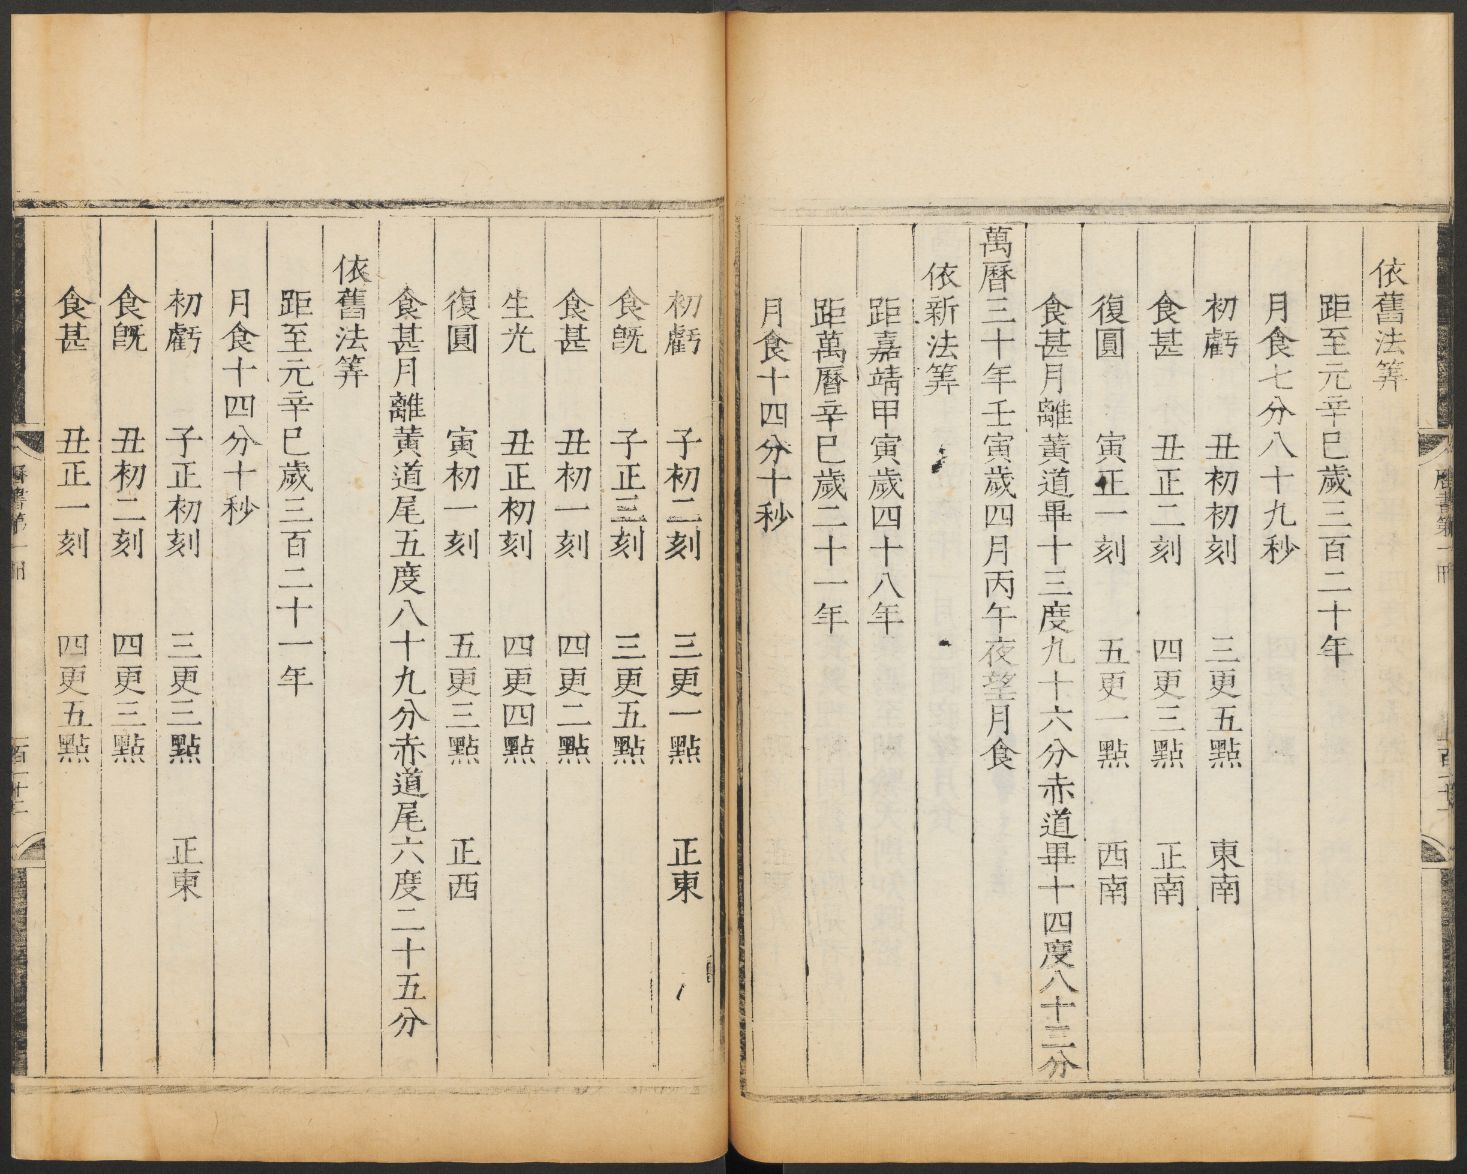 依舊法筭
距至元辛巳歲三百二十年
月食七分八十九秒
初虧 丑初初刻 三更五點 東南
食甚 丑正二刻 四更三點 正南
復圓 寅正一刻 五更一點 西南
食甚月離黃道畢十三度九十六分赤道畢十四度八十三分
萬曆三十年壬寅歲四月丙午夜望月食
依新法筭
距嘉靖甲寅歲四十八年
距萬曆辛巳歲二十一年
月食十四分十秒
初虧 子初二刻 三更一點 正東
食既 子正三刻 三更五點
食甚 丑初一刻 四更二點
生光 丑正初刻 四更四點
復圓 寅初一刻 五更三點 正西
食甚月離黃道尾五度八十九分赤道尾六度二十五分
依舊法筭
距至元辛巳歲三百二十一年
月食十四分十秒
初虧 子正初刻 三更三點 正東
食既 丑初二刻 四更三點
食甚 丑正一刻 四更五點
曆書第一冊